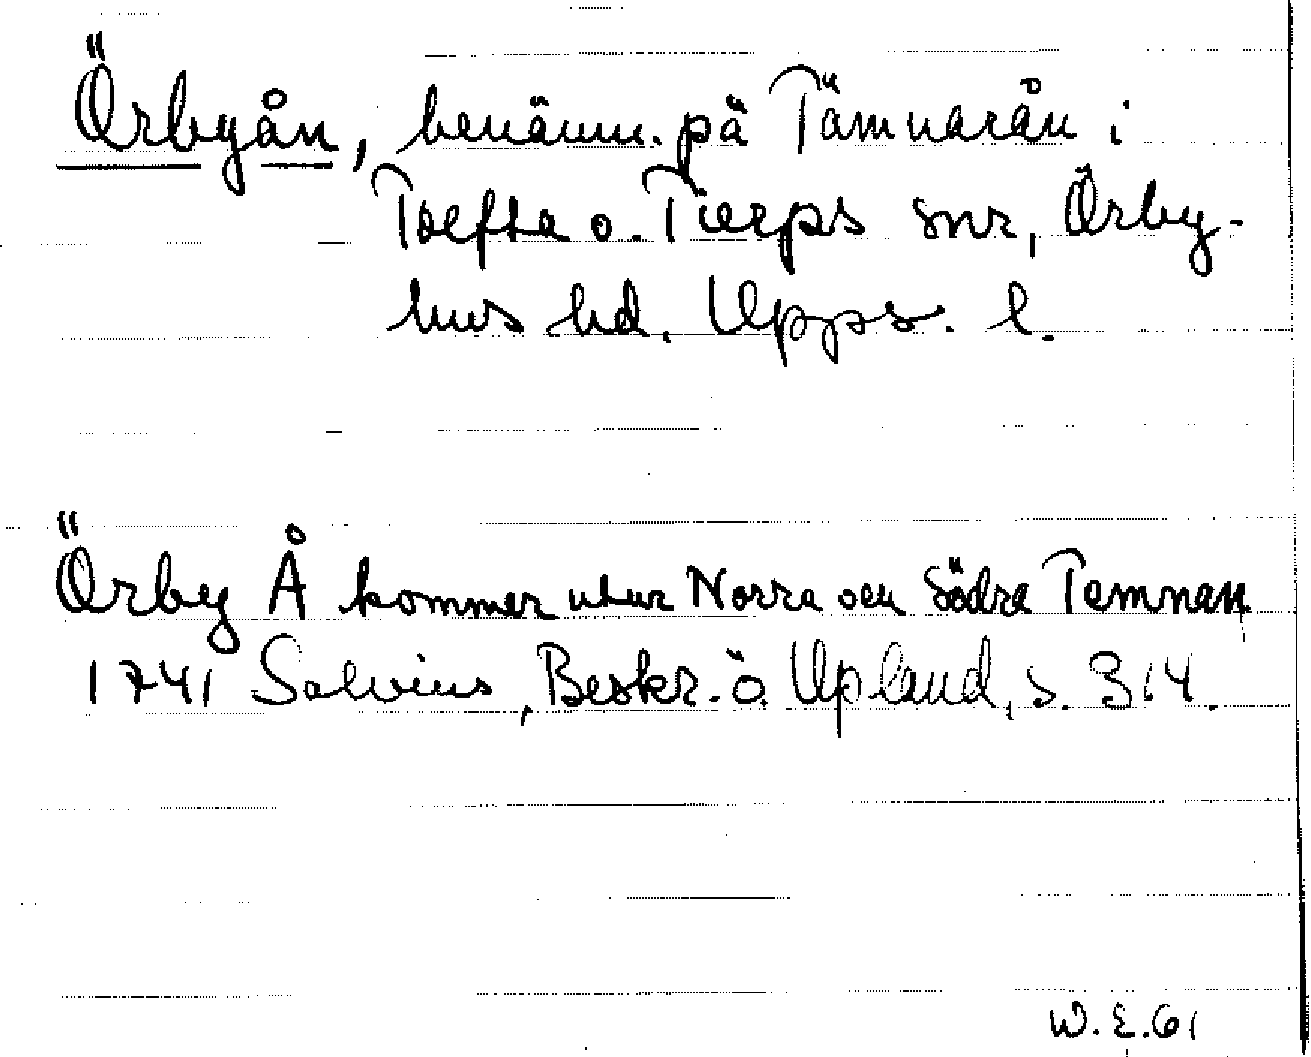 Örbyån, benämn. på Tämnarån i
Tolfta o. Tierps snr, Örby-
hus hd. Upps. l.
Örby Å kommer utur Norra och Södra Temnan
1741 Salvius, Beskr. ö. Upland, s. 314.
W. E. 61